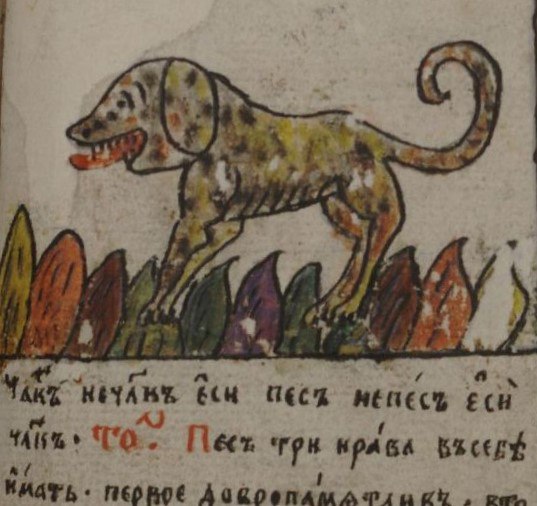 чл҃къ нечл҃къ є҆сѝ песъ непе́съ є҆сѝ
чл҃къ · То҃л Песъ три нра́ва въсебѣ
и҆́мать · первое добропа́мѧтливъ · вто